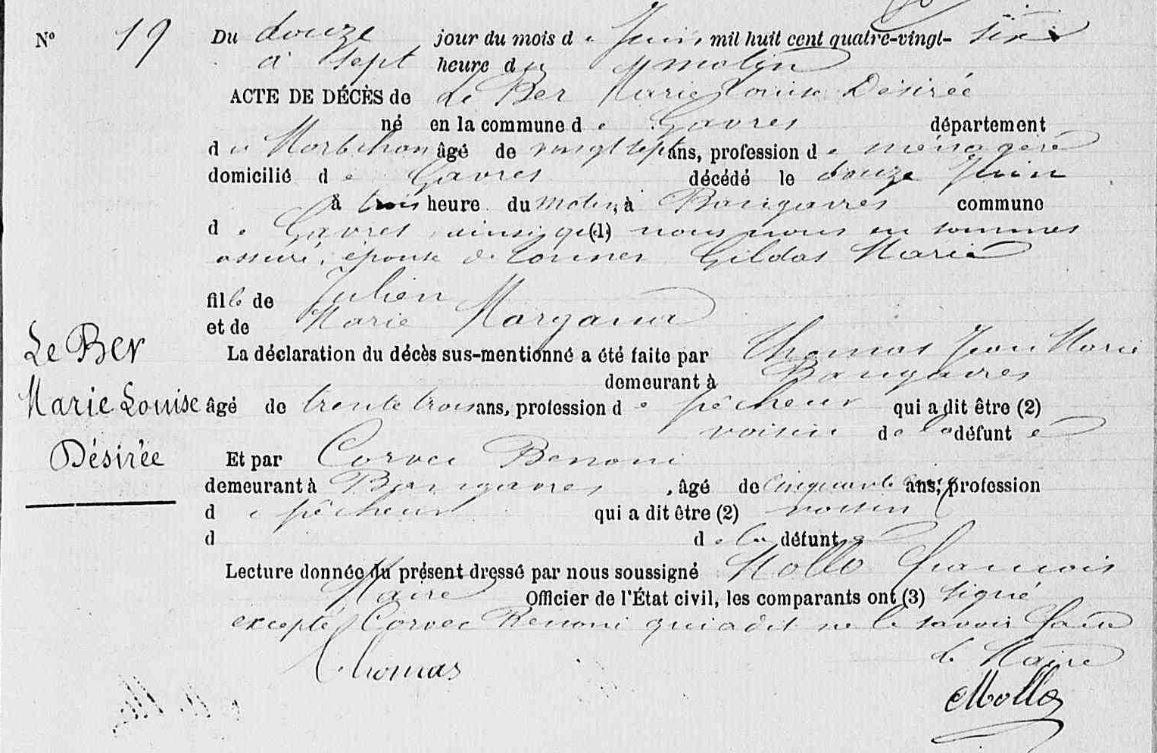 N° 19 Du douze jour du mois de Juin mil huit cent quatre-vingt-six
à sept heure du matin
ACTE DE DÉCÈS de Le Ber Marie Louise Désirée
né en la commune de Gavres département
du Morbihan âgé de vingt sept ans, profession de menagère
domicilié de Gavres décédé le douze Juin
à trois heure du matin, à Bangavres commune
de Gavres ainsi que (1) nous nous en sommes
assuré, épouse de Gildas Marie
fille de Julien
et de Marie
La déclaration du décès sus-mentionné a été faite par Thomas Jean Marie
demeurant à Bangavres
âgé de trente trois ans, profession de pêcheur qui a dit être (2)
voisin de la défunte
Et par Corvec Benoni
demeurant à Bangavres, âgé de cinquante ans, profession
de pêcheur qui a dit être (2) voisin
d de la défunte
Lecture donnée du présent dressé par nous soussigné Mollo François
Maire Officier de l'État civil, les comparants ont (3) signé
excepté Corvec Benoni qui a dit ne le savoir faire
Thomas
le Maire
Mollo
Le Ber
Marie Louise
Désirée